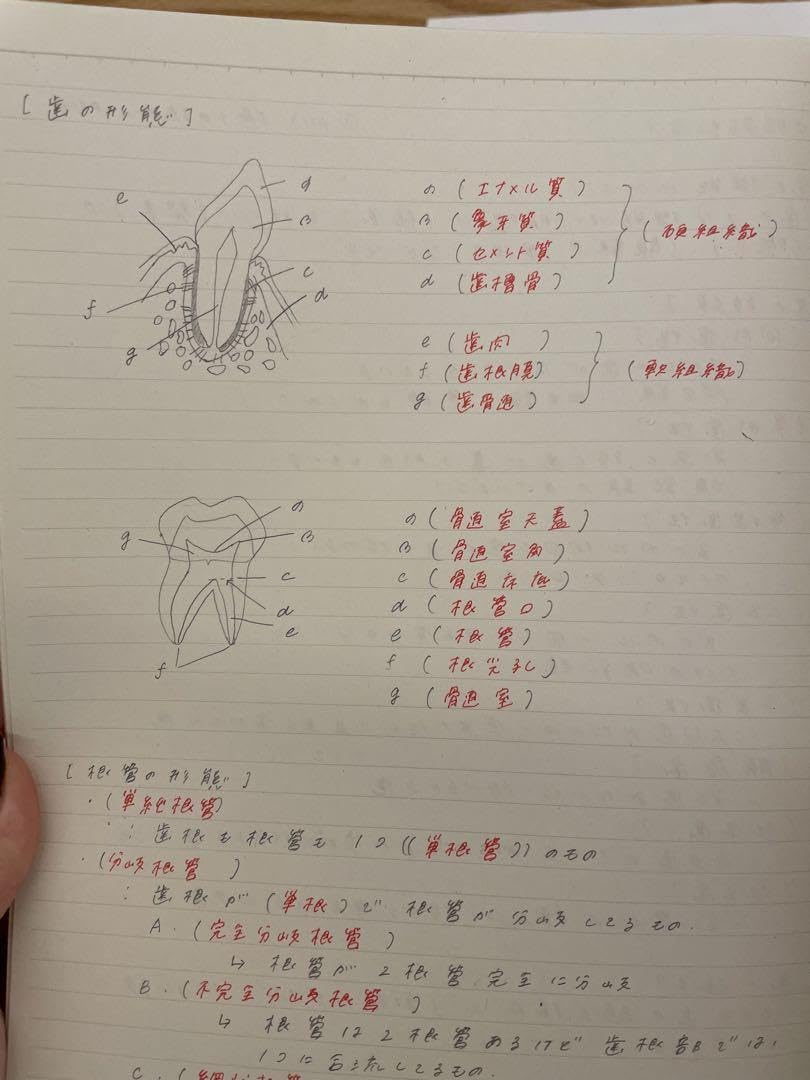 [歯の形態]
e
a
B
c
d
f
g
a (エナメル質)
B (象牙質)
c (セメント質)
d (歯槽骨)
(硬組織)
e (歯肉)
f (歯根膜)
g (歯骨逝)
(軟組織)
g
a
B
c
d
e
f
a (骨逝室天蓋)
B (骨逝室角)
c (骨逝床底)
d (根管口)
e (根管)
f (根尖孔)
g (骨逝室)
[根管の形態]
・(単純根管)
: 歯根も根管も1つ((単根管))のもの
・(分岐根管)
: 歯根が(単根)で根管が分岐してるもの.
A.(完全分岐根管)
↳ 根管が2根管 完全に分岐
B.(不完全分岐根管)
↳ 根管は2根管あるけど 歯根部では
1つに合流してるもの.
C.(